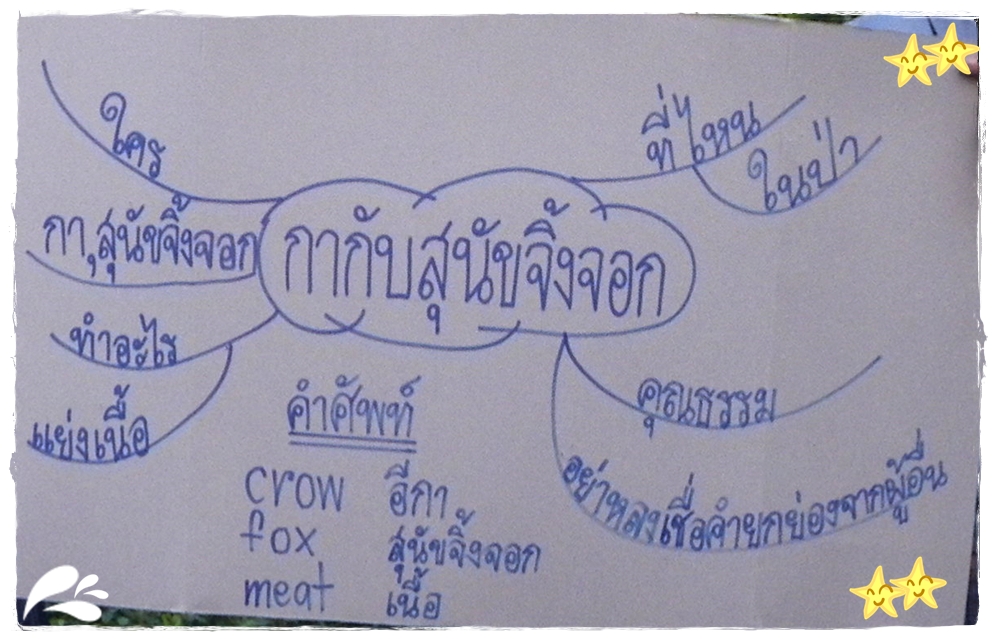 ใคร
กา,สุนัขจิ้งจอก
ทำอะไร
แย่งเนื้อ
กากับสุนัขจิ้งจอก
ที่ไหน
ในป่า
คุณธรรม
อย่าหลงเชื่อคำยกย่องจากผู้อื่น
คำศัพท์
crow อีกา
fox สุนัขจิ้งจอก
meat เนื้อ